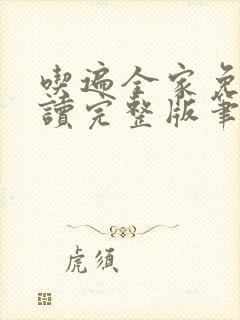 喫遍全家免
讀完整版筆
虎須